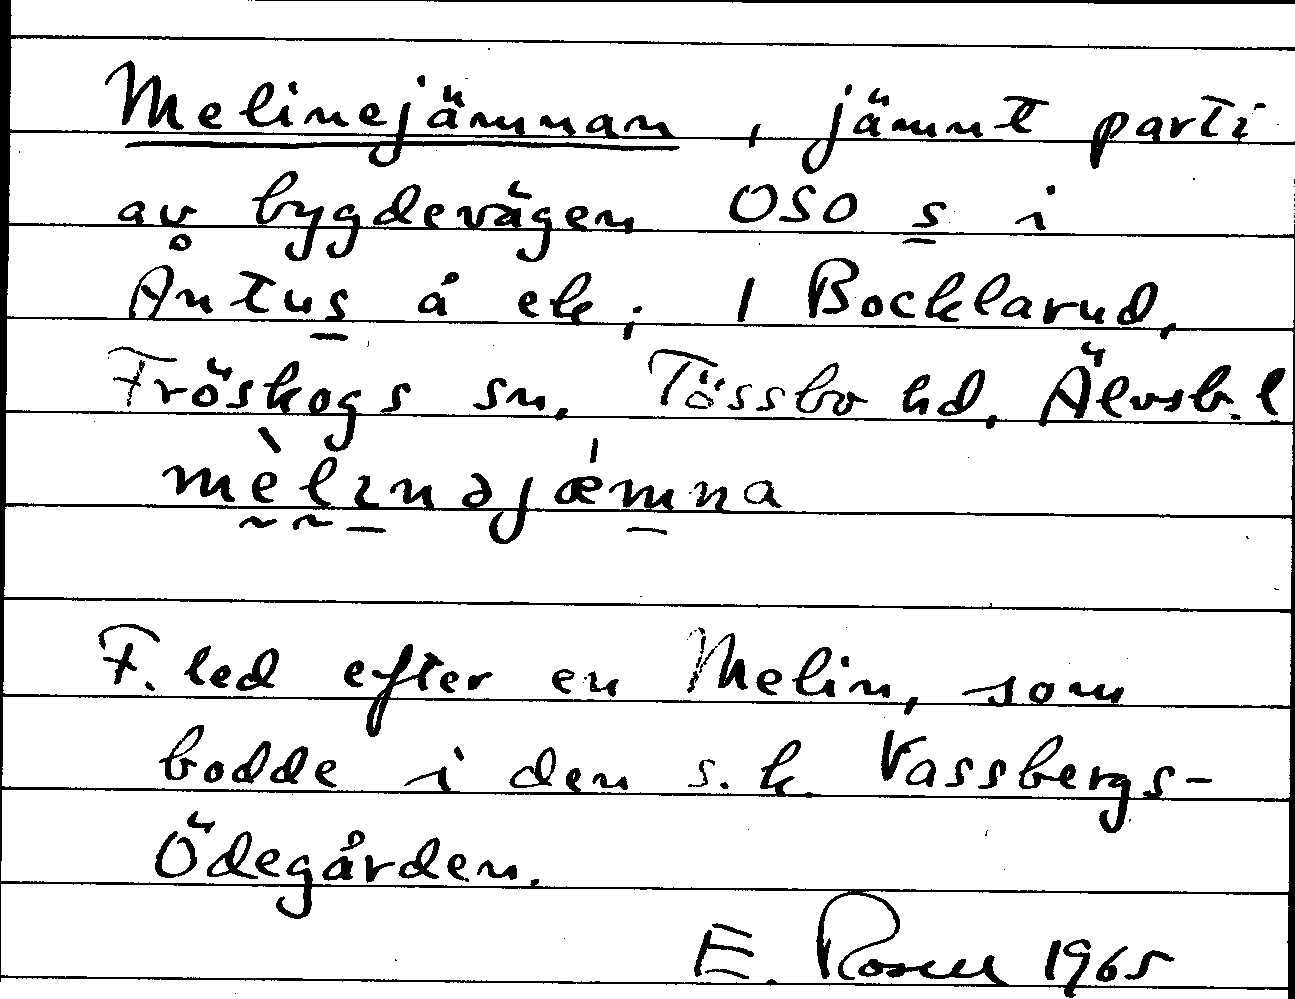 Melinejämnan, jämnt parti
av bygdevägen OSO s i
Åntus å ek; 1 Bocklarud,
Fröskogs sn, Tössbo hd, Älvsb. l.
mèlınəjæ̍mna
F. led efter en Melin, som
bodde i den s.k. Vassbergs-
Ödegården.
E. Rosell 1965